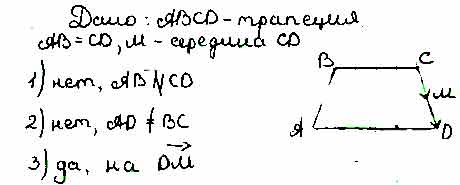 Дано: ABCD - трапеция
AB = CD, M - середина CD
1) нет, AB ∦ CD
2) нет, AD ≠ BC
3) да, на DM→
B C
M
A D